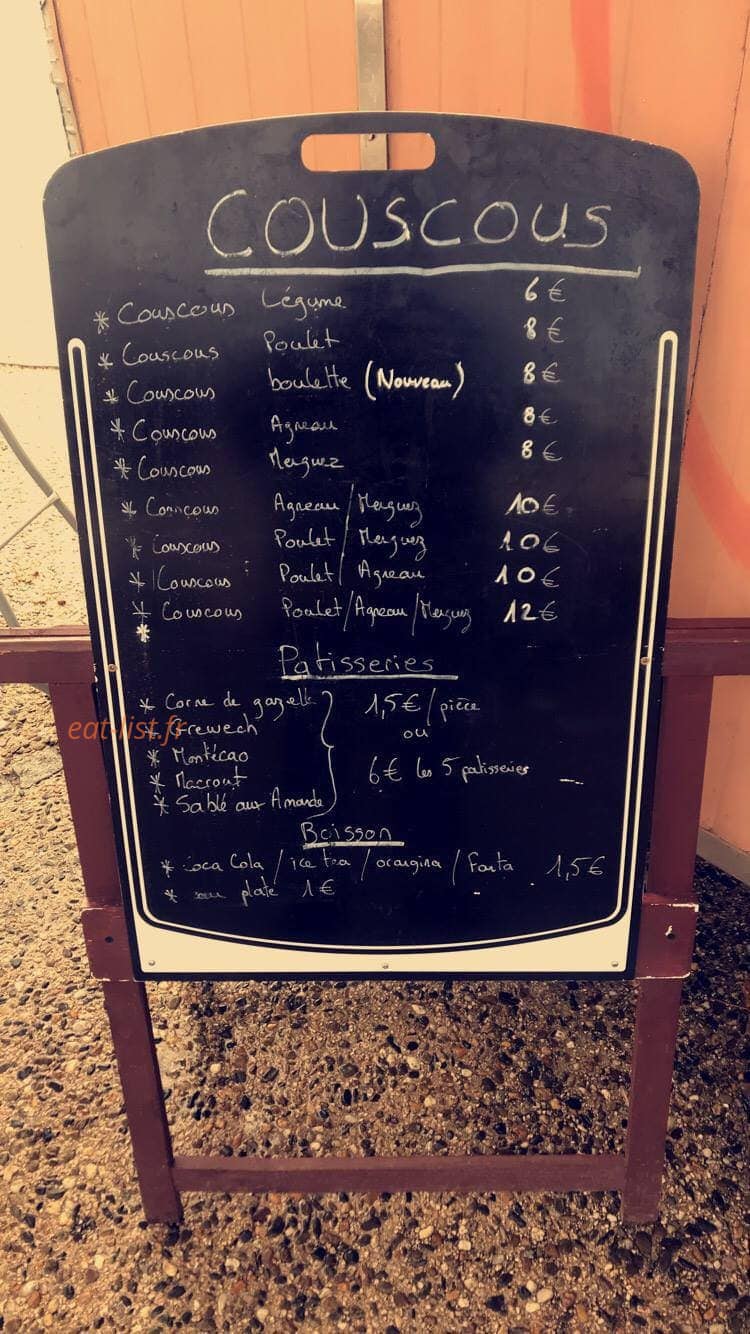 COUSCOUS
* Couscous Légume 6 €
* Couscous Poulet 8 €
* Couscous boulette (Nouveau) 8 €
* Couscous Agneau 8 €
* Couscous Merguez 8 €
* Couscous Agneau / Merguez 10 €
* Couscous Poulet / Merguez 10 €
* Couscous Poulet / Agneau 10 €
* Couscous Poulet / Agneau / Merguez 12 €
*
Patisseries
* Corne de gazelle 1,5€ / pièce
eat-list.fr
* Grewech ou
* Montécao
* Macrout 6€ les 5 patisseries
* Sablé aux Amande
Boisson
* coca Cola / ice tea / orangina / Fanta 1,5€
* plate 1€